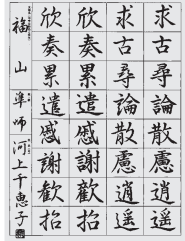 求古尋論散慮逍遥
求古尋論散慮逍遥
欣奏累遣慼謝歓招
欣奏累遣慼謝歓招
福山 準師 河上千恵子